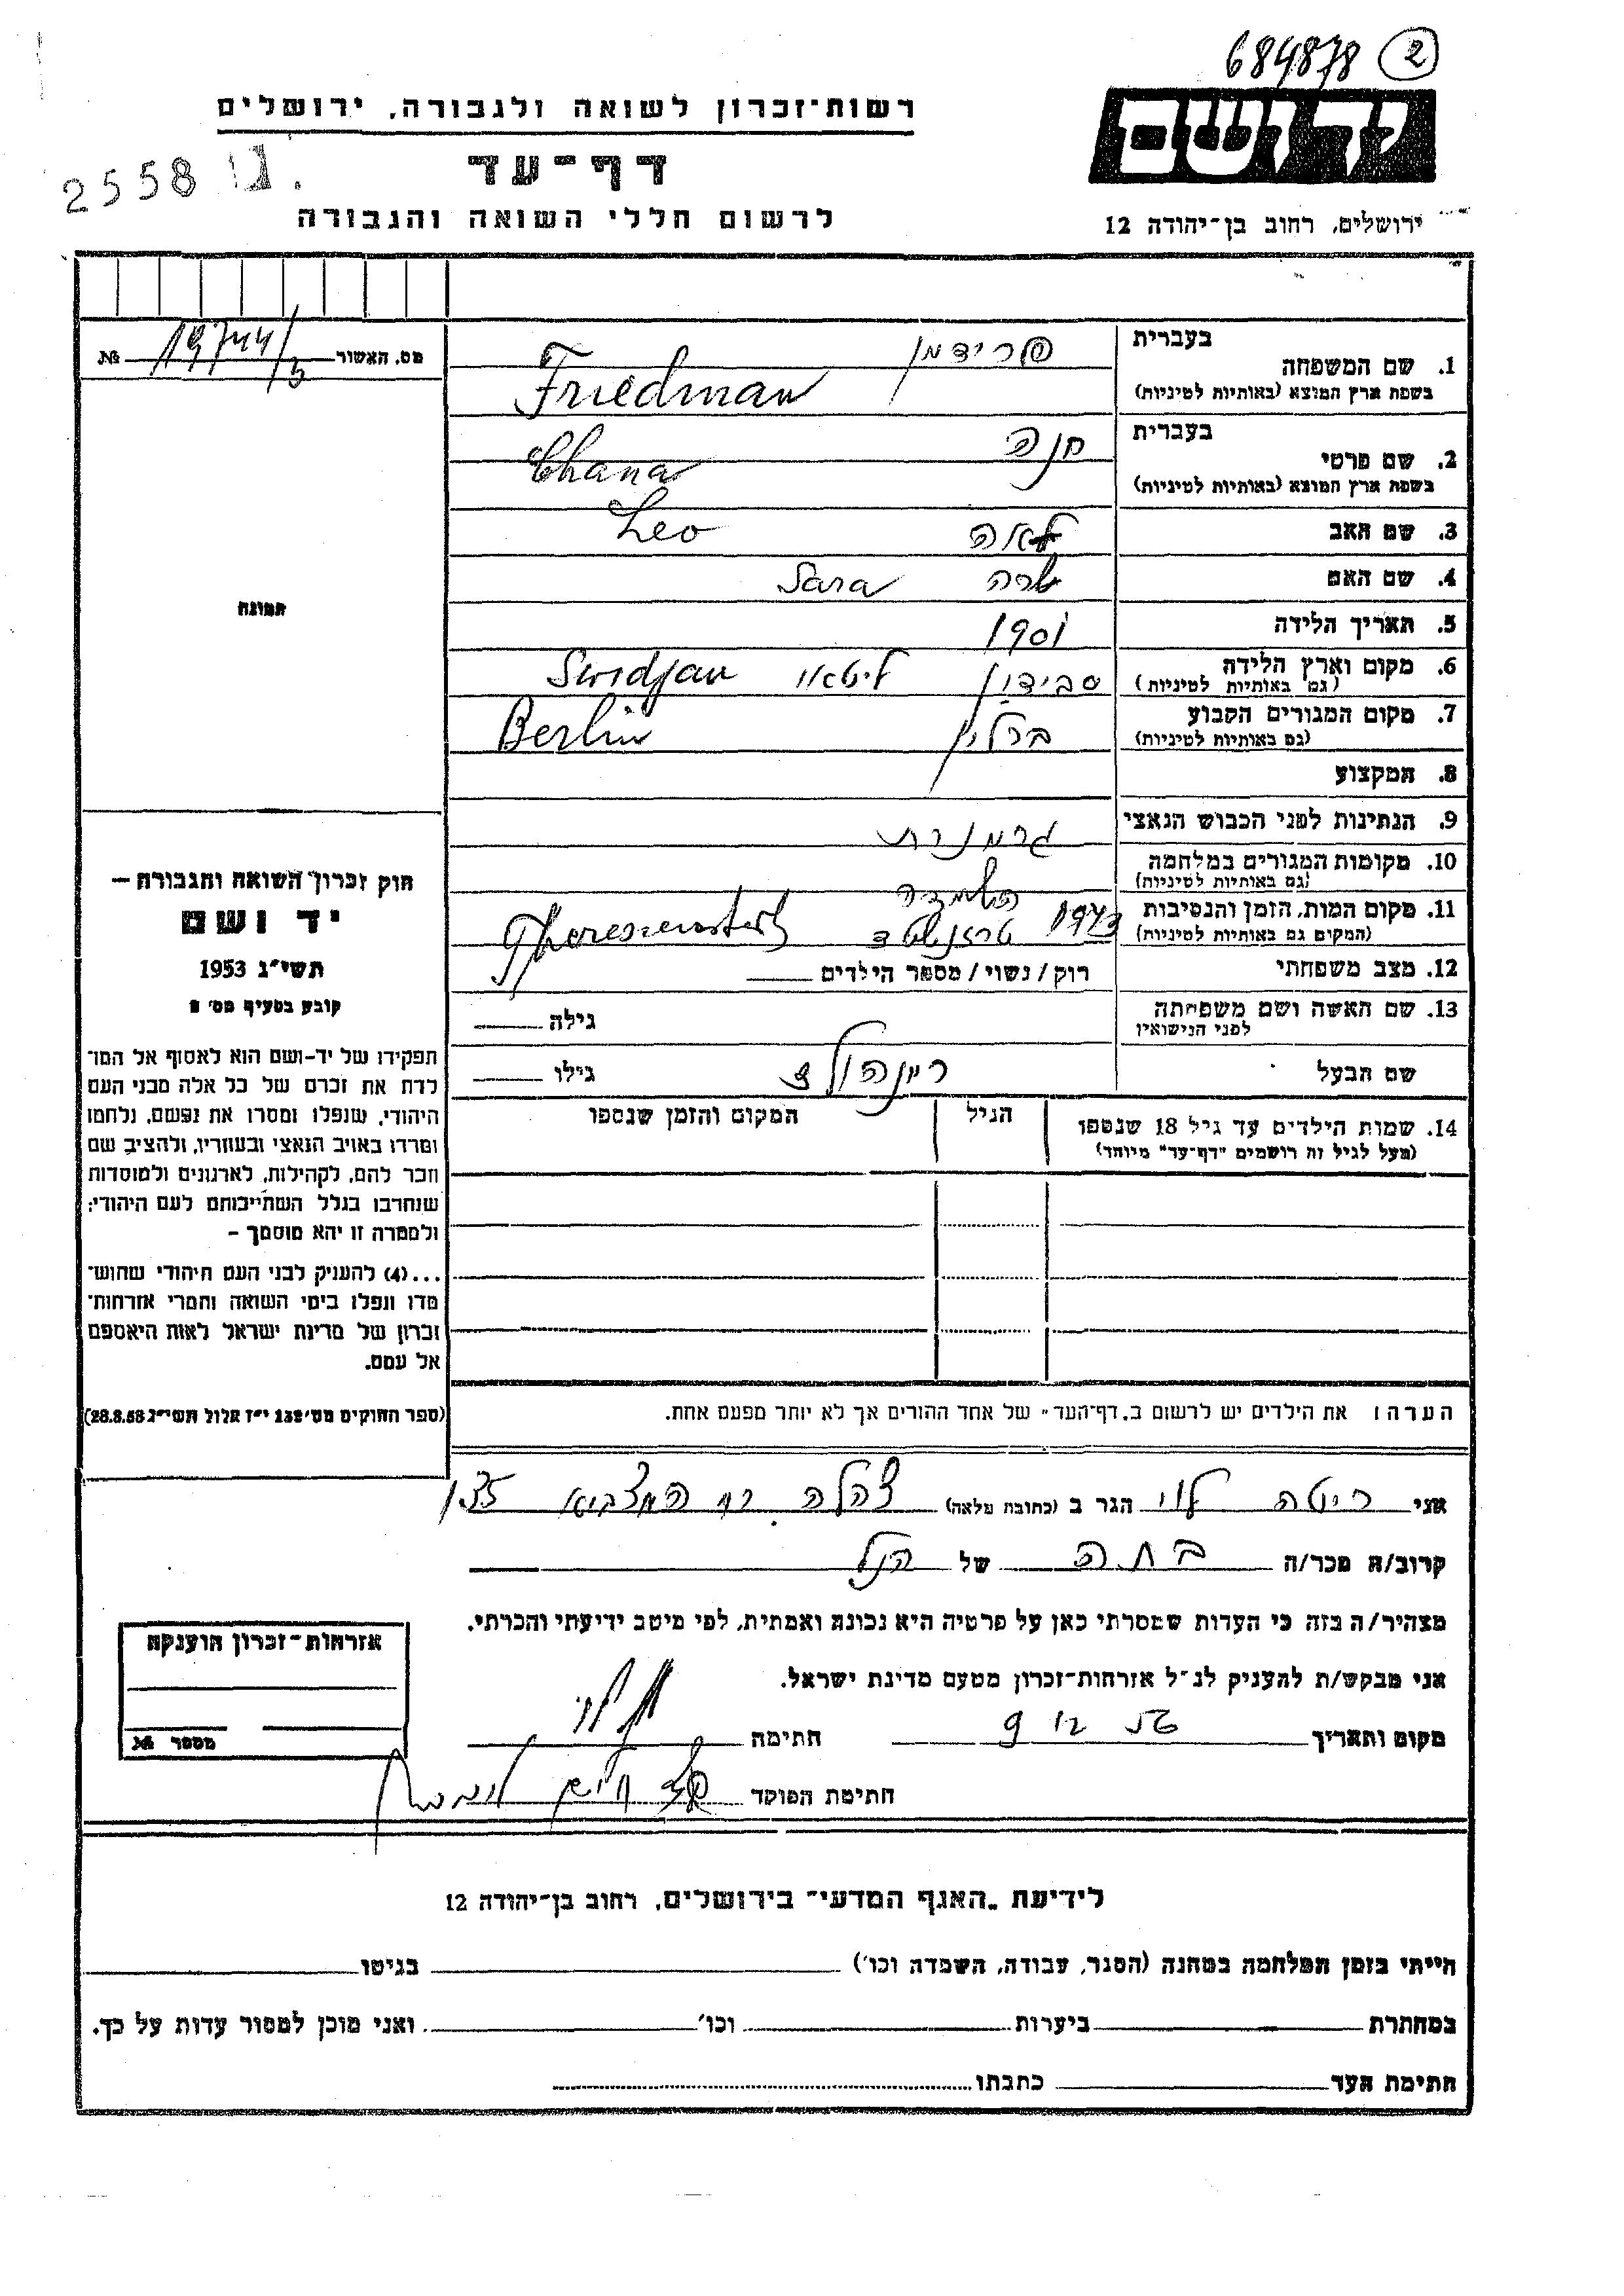 684878 2
יד ושם
ירושלים, רחוב בן־יהודה 12
רשות־זכרון לשואה ולגבורה, ירושלים
דף־עד
לרשום חללי השואה והגבורה
2558
מס. האשור № 19744/3
תמונה
1. שם המשפחה
בעברית פרידמן
בשפת ארץ המוצא (באותיות לטיניות) Friedman
2. שם פרטי
בעברית חנה
בשפת ארץ המוצא (באותיות לטיניות) Chana
3. שם האב Leo
4. שם האם שרה Sara
5. תאריך הלידה 1901
6. מקום וארץ הלידה
(גם באותיות לטיניות)
7. מקום המגורים הקבוע ברלין Berlin
(גם באותיות לטיניות)
8. המקצוע
9. הנתינות לפני הכבוש הנאצי
10. מקומות המגורים במלחמה
(גם באותיות לטיניות)
11. מקום המות, הזמן והנסיבות 1943
(המקום גם באותיות לטיניות) Theresienstadt
12. מצב משפחתי רוק / נשוי / מספר הילדים
13. שם האשה ושם משפחתה
לפני הנישואין
גילה
שם הבעל ריינהולד גילו
14. שמות הילדים עד גיל 18 שנספו
(מעל לגיל זה רושמים "דף־עד" מיוחד)
הגיל
המקום והזמן שנספו
הערה: את הילדים יש לרשום ב„דף־העד" של אחד ההורים אך לא יותר מפעם אחת.
חוק זכרון השואה והגבורה —
יד ושם
תשי"ג 1953
קובע בסעיף מס׳ 2
תפקידו של יד־ושם הוא לאסוף אל המו־
לדת את זכרם של כל אלה מבני העם
היהודי, שנפלו ומסרו את נפשם, נלחמו
ומרדו באויב הנאצי ובעוזריו, ולהציב שם
וזכר להם, לקהילות, לארגונים ולמוסדות
שנחרבו בגלל השתייכותם לעם היהודי;
ולמטרה זו יהא מוסמך –
...(4) להעניק לבני העם היהודי שהוש־
מדו ונפלו בימי השואה והמרי אזרחות־
זכרון של מדינת ישראל לאות היאספם
אל עמם.
(ספר החוקים מס׳ 132 י"ז אלול תשי"ג 28.8.53)
אני ריטה לוי הגר ב (כתובת מלאה) צהלה רח המצביא 135
קרוב/ה מכר/ה בתה של הנ"ל
מצהיר/ה בזה כי העדות שמסרתי כאן על פרטיה היא נכונה ואמתית, לפי מיטב ידיעתי והכרתי.
אני מבקש/ת להעניק לנ"ל אזרחות־זכרון מטעם מדינת ישראל.
מקום ותאריך חתימה
חתימת הפוקד
אזרחות־זכרון הוענקה
מספר №
לידיעת „האגף המדעי" בירושלים, רחוב בן־יהודה 12
הייתי בזמן המלחמה במחנה (הסגר, עבודה, השמדה וכו׳) בגיטו
במחתרת ביערות וכו׳ ואני מוכן למסור עדות על כך.
חתימת העד כתבתו